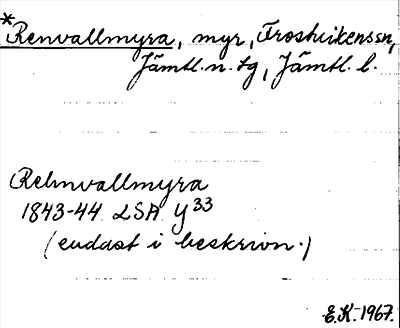 *Renvallmyra, myr, Frostvikenssn,
Jämtl. n. tg, Jämtl. l.
Rehnvallmyra
1843-44 LSA Y33
(endast i beskrivn.)
E.K. 1967.